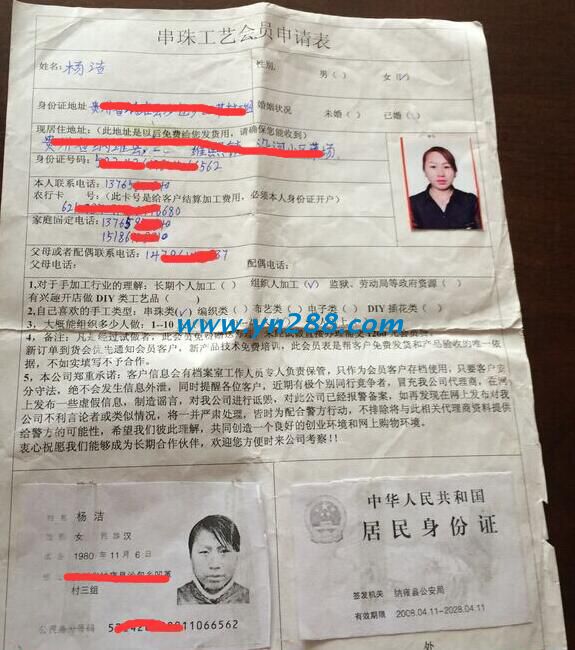 串珠工艺会员申请表
姓名: 杨洁 性别: 男( ) 女(√)
身份证地址: 贵州省 婚姻状况 未婚( ) 已婚( )
现居住地址:(此地址是以后免费给您发费用,请确保您能收到)
贵州省
身份证号码: 6562
本人联系电话: 1376
农行卡 号:(此卡号是给客户结算加工费用,必须本人身份证开户)
62 0680
家庭固定电话: 1376
1518
父母或者配偶联系电话: 147 37
父母电话: 配偶电话:
1,对于手加工行业的理解:长期个人加工( ) 组织人加工(√) 监狱、劳动局等政府资源( )
有兴趣开店做 DIY 类工艺品( )
2,自己喜欢的手工类型:串珠类(√) 编织类( ) 布艺类( ) 电子类( ) DIY 插花类( )
3、大概能组织多少人做:1--10
www.yn288.com
4,备注:凡是经
新订单到货会优先通知会员客户,新产品技术免费培训,此会员表是帮客户免费发货和产品验收的唯一依
据,不如实填写不予合作。
5、本公司郑重承诺:客户信息会有档案室工作人员专人负责保管,只作为会员客户存档使用,只要客户安
分守法,绝不会发生信息外泄,同时提醒各位客户,近期有极个别同行竞争者,冒充我公司代理商,在网
上发布一些虚假信息,制造谣言,对我公司进行诋毁,对此公司已经报警备案,如再发现在网上发布对我
公司不利言论者或类似情况,将一并严肃处理,皆时为配合警方行动,不排除将与此相关代理商资料提供
给警方的可能性,希望我们彼此理解,共同创造一个良好的创业环境和网上购物环境。
衷心祝愿我们能够成为长期合作伙伴,欢迎您方便时来公司考察!!
姓名 杨洁
性别 女 民族 汉
1980 年 11 月 6 日
村三组
公民身份号码 11066562
中华人民共和国
居民身份证
签发机关 纳雍县公安局
有效期限 2008.04.11-2028.04.11
处